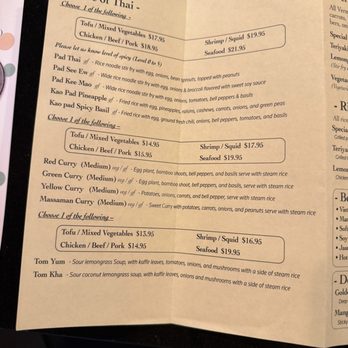 of Thai -
Choose 1 of the following –
Tofu / Mixed Vegetables $17.95
Chicken / Beef / Pork $18.95
Shrimp / Squid $19.95
Seafood $21.95
Please let us know level of spicy (Level 0 to 5)
Pad Thai - Rice noodle stir fry with egg, onions, bean sprouts, topped with peanuts
Pad See Ew gf - Wide rice noodle stir fry with egg, onions & broccoli flavored with sweet soy sauce
Pad Kee Mao gf - Wide rice noodle stir fry with egg, onions, tomatoes, bell peppers & basils
Kao Pad Pineapple gf - Fried rice with egg, pineapples, raisins, cashews, carrots, onions, and green peas
Kao pad Spicy Basil gf - Fried rice with egg, ground fresh chili, onions, bell peppers, tomatoes, and basils
Choose 1 of the following –
Tofu / Mixed Vegetables $14.95
Chicken / Beef / Pork $15.95
Shrimp / Squid $17.95
Seafood $19.95
Red Curry (Medium) veg / gf - Egg plant, bamboo shoots, bell peppers, and basils serve with steam rice
Green Curry (Medium) veg / gf - Egg plant, bamboo shoot, bell peppers, and basils, serve with steam rice
Yellow Curry (Medium) veg / gf - Potatoes, onions, carrots, and bell pepper, serve with steam rice
Massaman Curry (Medium) veg / gf - Sweet Curry with potatoes, carrots, onions, and peanuts serve with steam rice
Choose 1 of the following –
Tofu / Mixed Vegetables $13.95
Chicken / Beef / Pork $14.95
Shrimp / Squid $16.95
Seafood $19.95
Tom Yum - Sour lemongrass Soup, with kaffir leaves, tomatoes, onions, and mushrooms with a side of steam rice
Tom Kha - Sour coconut lemongrass soup, with kaffir leaves, onions and mushrooms with a side of steam rice
All Ver
carrots,
Special
Teriyak
Lemon
Vegeta
- R
All rice
Special
Teriya
Lemon
- B
- D
Golde
Mang